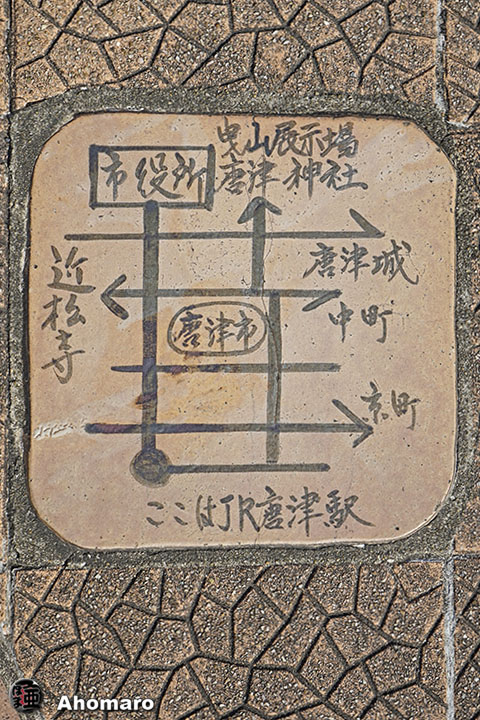 曳山展示場
市役所
唐津神社
唐津城
近松寺
中町
唐津市
京町
ここはJR唐津駅
Ahomaro